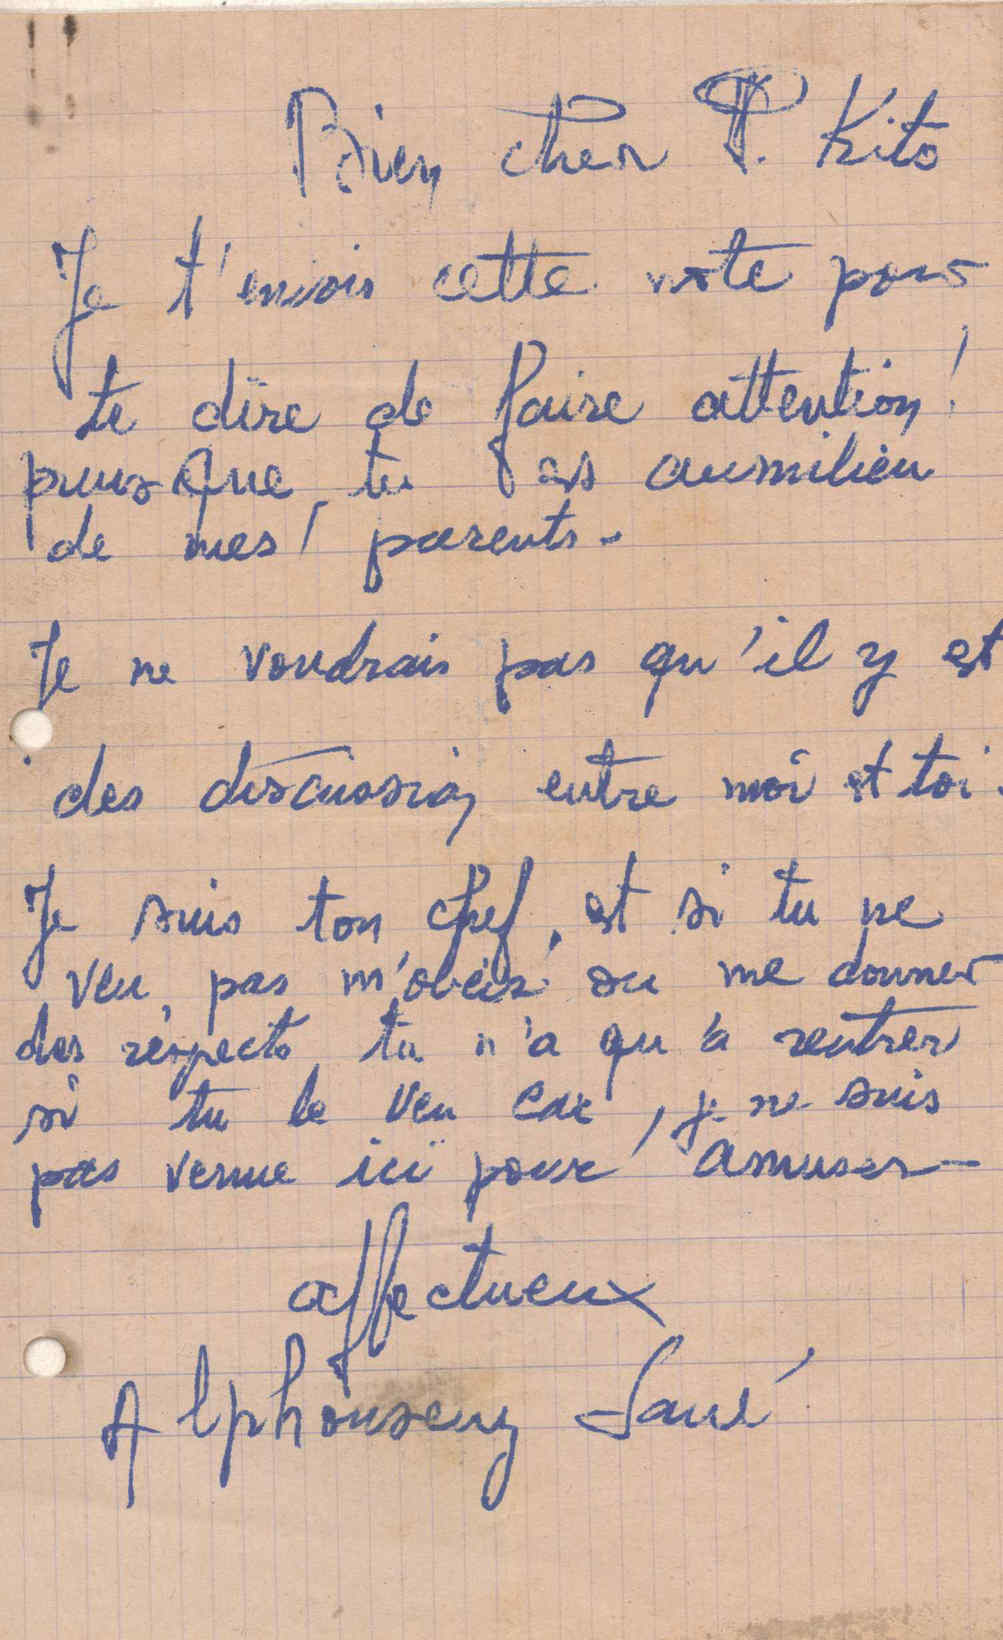 Bien cher P. Kito
Je t'envois cette note pour
te dire de faire attention!
puusque tu es aumilieu
de mes parents-
Je ne voudrais pas qu'il y est
des discussion entre moi et toi.
Je suis ton chef, et si tu ne
veu pas m'obéir ou me donner
des réspects tu n'a qu'à rentrer
si tu le veu car, je ne suis
pas venue ici pour amuser-
affectueux
Alphousseny Sané